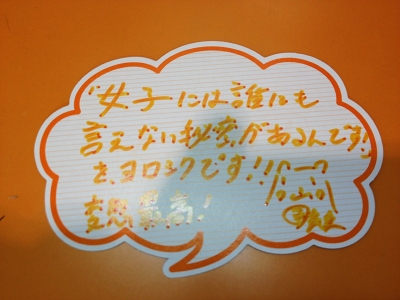 "女子には誰にも
言えない秘密があるんです!"
を、ヨロシクです!!
妄想最高!